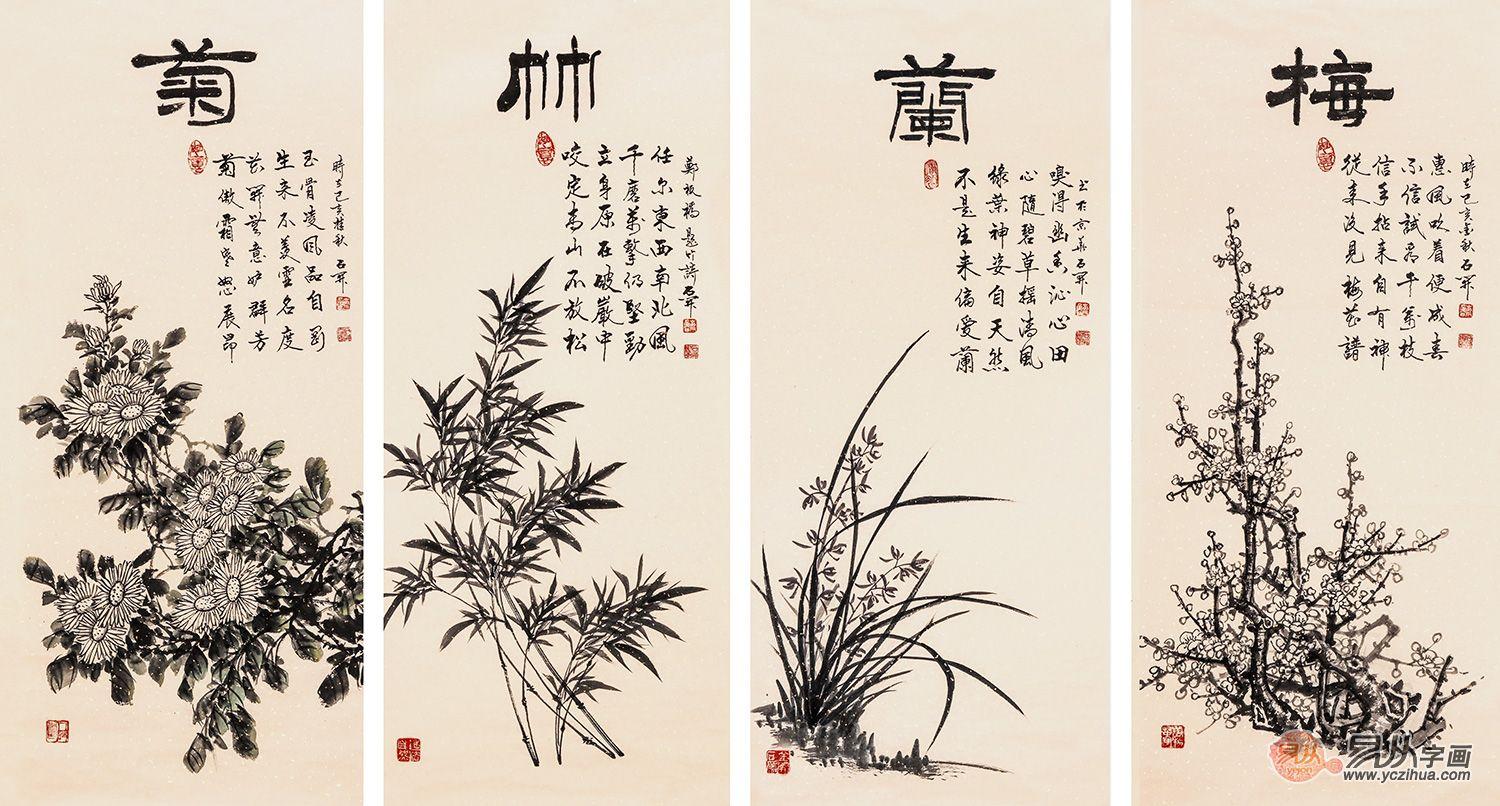 梅
從来没見梅花譜
信手拈来自有神
不信試看千萬枝
惠風吹着便成春
時在己亥金秋石開
蘭
不是生来偏愛蘭
綠葉神姿自天然
心隨碧草搖清風
嗅得幽香沁心田
書於京華石開
竹
咬定高山不放松
立身原在破巖中
千磨萬擊仍堅勁
任尔東西南北風
鄭板橋題竹詩石開
菊
菊傲霜寒怒展昂
花開無意妒群芳
生来不羨虛名度
玉骨凌風品自剛
時在己亥桂秋石開
易纵
yzon
易纵字画
www.yczihua.com